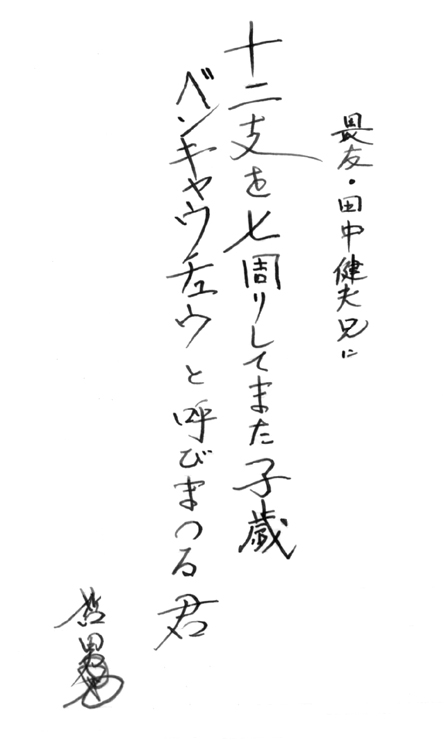 畏友・田中健夫兄に
十二支を七周りしてまた子歳
ベンキャウチュウと呼びまつる君